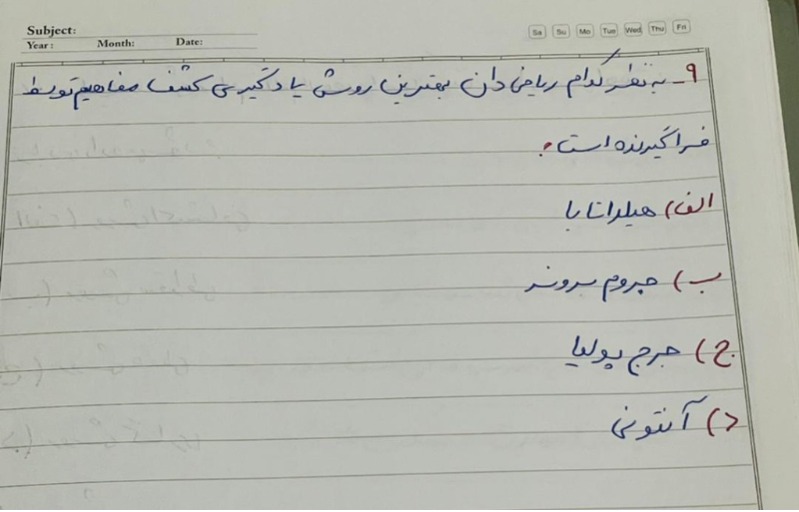 Subject:
Year: Month: Date:
Sa Su Mo Tue Wed Thu Fri
۹_ به نظر کدام ریاضی دان بهترین روش یادگیری کشف مفاهیم توسط
فراگیرنده است؟
الف) هیلداتابا
ب) جروم برونر
ج) جرج پولیا
د) آنتونی